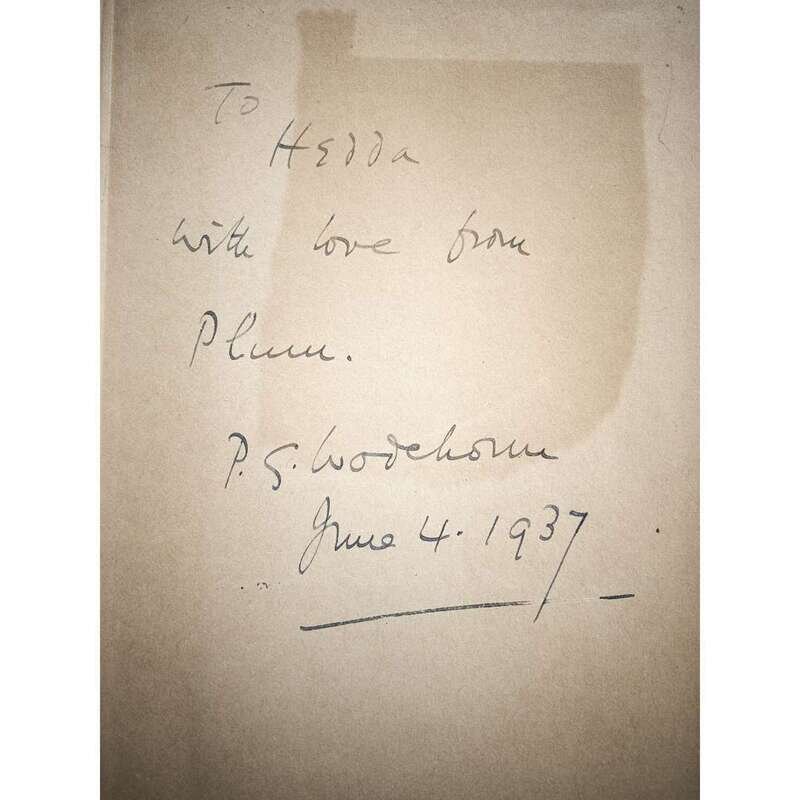 To
Hedda
with love from
Plum.
P. G. Wodehouse
June 4. 1937